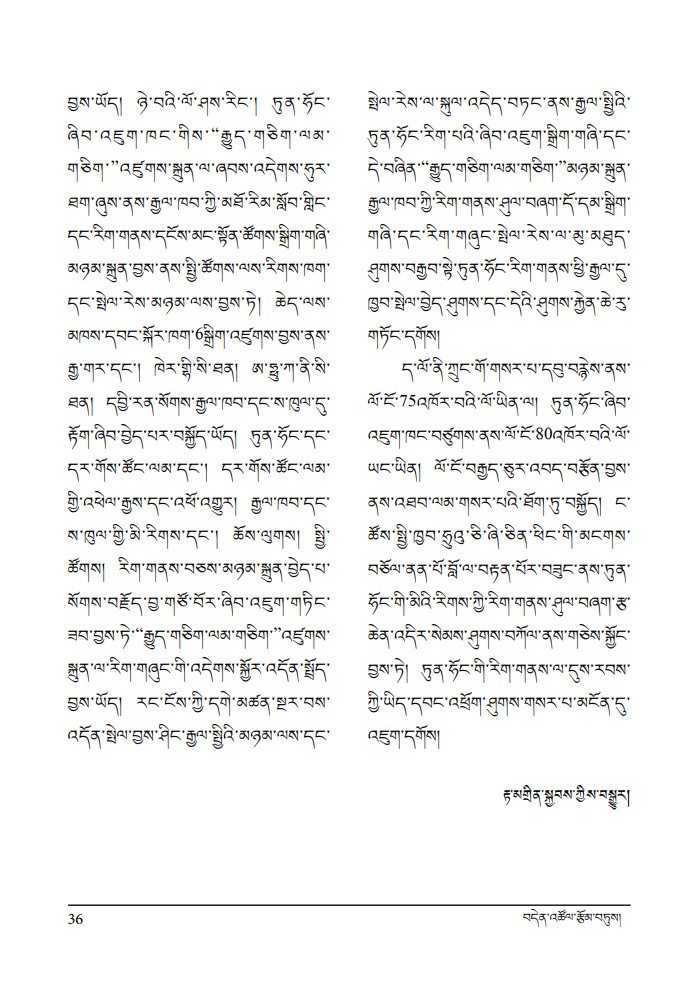 བྱས་ཡོད། ཉེ་བའི་ལོ་ཤས་རིང་། ཏུན་ཧོང་
ཞིབ་འཇུག་ཁང་གིས་“རྒྱུད་གཅིག་ལམ་
གཅིག་”འཛུགས་སྐྲུན་ལ་ཞབས་འདེགས་ཧུར་
ཐག་ཞུས་ནས་རྒྱལ་ཁབ་ཀྱི་མཐོ་རིམ་སློབ་གླིང་
དང་རིག་གནས་དངོས་མང་སྟོན་ཚོགས་སྒྲིག་གཞི་
མཉམ་སྐྲུན་བྱས་ནས་སྤྱི་ཚོགས་ལས་རིགས་ཁག་
དང་སྤེལ་རེས་མཉམ་ལས་བྱས་ཏེ། ཆེད་ལས་
མཁས་དབང་སྐོར་ཁག་6སྒྲིག་འཛུགས་བྱས་ནས་
རྒྱ་གར་དང་། ཁེར་གྷི་སི་ཐན། ཨ་ཧྥུ་ཀ་ནི་སི་
ཐན། དབྱི་རན་སོགས་རྒྱལ་ཁབ་དང་ས་ཁུལ་དུ་
རྟོག་ཞིབ་བྱེད་པར་བསྐྱོད་ཡོད། ཏུན་ཧོང་དང་
དར་གོས་ཚོང་ལམ་དང་། དར་གོས་ཚོང་ལམ་
གྱི་འཕེལ་རྒྱས་དང་འཕོ་འགྱུར། རྒྱལ་ཁབ་དང་
ས་ཁུལ་གྱི་མི་རིགས་དང་། ཆོས་ལུགས། སྤྱི་
ཚོགས། རིག་གནས་བཅས་མཉམ་སྐྲུན་བྱེད་པ་
སོགས་བརྗོད་བྱ་གཙོ་བོར་ཞིབ་འཇུག་གཏིང་
ཟབ་བྱས་ཏེ་“རྒྱུད་གཅིག་ལམ་གཅིག་”འཛུགས་
སྐྲུན་ལ་རིག་གཞུང་གི་འདེགས་སྐྱོར་འདོན་སྤྲོད་
བྱས་ཡོད། རང་ངོས་ཀྱི་དགེ་མཚན་སྔར་བས་
འདོན་སྤེལ་བྱས་ཤིང་རྒྱལ་སྤྱིའི་མཉམ་ལས་དང་
སྤེལ་རེས་ལ་སྐུལ་འདེད་བཏང་ནས་རྒྱལ་སྤྱིའི་
ཏུན་ཧོང་རིག་པའི་ཞིབ་འཇུག་སྒྲིག་གཞི་དང་
དེ་བཞིན་“རྒྱུད་གཅིག་ལམ་གཅིག་”མཉམ་སྐྲུན་
རྒྱལ་ཁབ་ཀྱི་རིག་གནས་ཤུལ་བཞག་དོ་དམ་སྒྲིག་
གཞི་དང་རིག་གཞུང་སྤེལ་རེས་ལ་མུ་མཐུད་
ཤུགས་བརྒྱབ་སྟེ་ཏུན་ཧོང་རིག་གནས་ཕྱི་རྒྱལ་དུ་
ཁྱབ་སྤེལ་བྱེད་ཤུགས་དང་དེའི་ཤུགས་རྐྱེན་ཆེ་རུ་
གཏོང་དགོས།
ད་ལོ་ནི་ཀྲུང་གོ་གསར་པ་དབུ་བརྙེས་ནས་
ལོ་ངོ་75འཁོར་བའི་ལོ་ཡིན་ལ། ཏུན་ཧོང་ཞིབ་
འཇུག་ཁང་བཙུགས་ནས་ལོ་ངོ་80འཁོར་བའི་ལོ་
ཡང་ཡིན། ལོ་ངོ་བརྒྱད་ཅུར་འབད་བརྩོན་བྱས་
ནས་འཐབ་ལམ་གསར་པའི་ཐོག་ཏུ་བསྐྱོད། ང་
ཚོས་སྤྱི་ཁྱབ་ཧྲུའུ་ཅི་ཞི་ཅིན་ཕིང་གི་མངགས་
བཅོལ་ནན་པོ་བློ་ལ་བརྟན་པོར་བཟུང་ནས་ཏུན་
ཧོང་གི་མིའི་རིགས་ཀྱི་རིག་གནས་ཤུལ་བཞག་རྩ་
ཆེན་འདིར་སེམས་ཤུགས་བཀོལ་ནས་གཅེས་སྐྱོང་
བྱས་ཏེ། ཏུན་ཧོང་གི་རིག་གནས་ལ་དུས་རབས་
ཀྱི་ཡིད་དབང་འཕྲོག་ཤུགས་གསར་པ་མངོན་དུ་
འཇུག་དགོས།
རྟ་མགྲིན་སྐྱབས་ཀྱིས་བསྒྱུར།
36
བདེན་འཚོལ་རྩོམ་བཏུས།